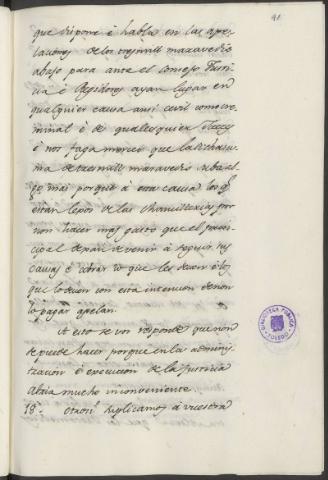 41
que dispone é habla en las ape-
laciones de los tresmill maravedis
abajo para ante el Consejo Justi-
cia é Regidores ayan lugar en
qualquier causa ansi civil como cri-
minal é de qualesquier Jueces
é nos faga merced que la dicha su-
ma de tresmill maravedis suba al-
go mas porque á esta causa los q.
estan lejos de las Chancillerias por
non hacer mas gasto que el prin-
cipal dejan de venir á seguir sus
causas é cobrar lo que les deven é los
que lo deven con esta intencion de non
lo pagar apelan.
A esto se vos responde que non
se puede hacer porque en la adminis-
tracion é execucion de la Justicia
abria mucho inconveniente.
18ª. Otrosi Suplicamos á vuestra
BIBLIOTECA PUBLICA
TOLEDO